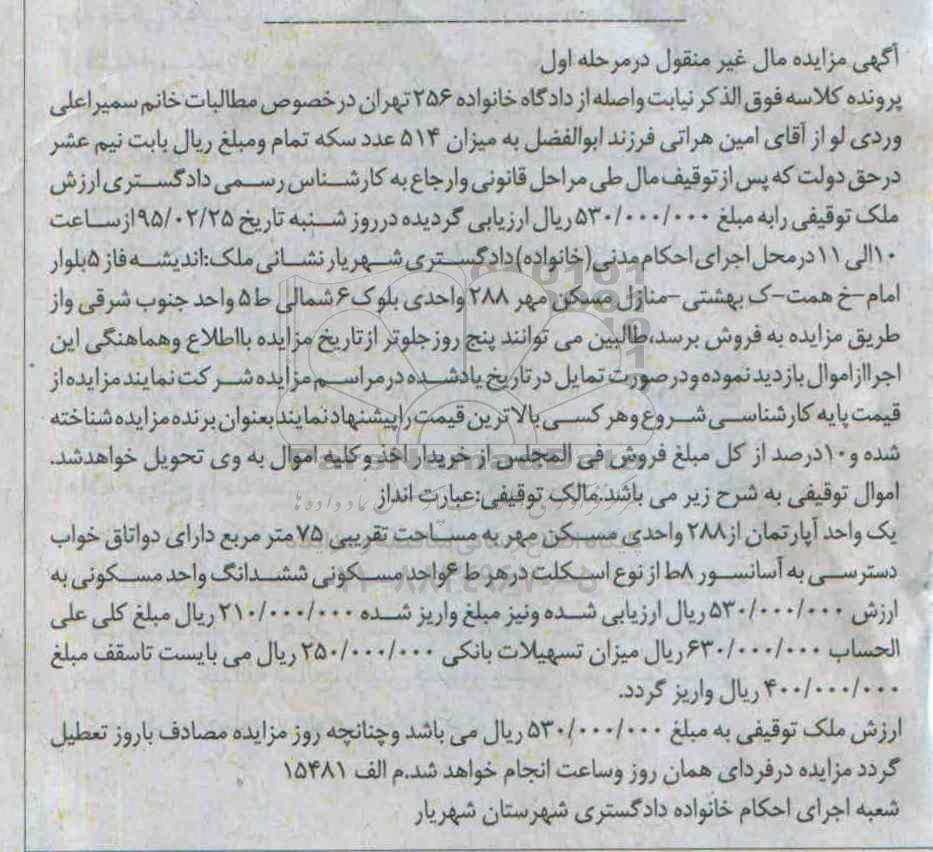 آگهی مزایده مال غیر منقول درمرحله اول
پرونده کلاسه فوق الذکر نیابت واصله از دادگاه خانواده ۲۵۶ تهران درخصوص مطالبات خانم سمیراعلی
وردی لو از آقای امین هراتی فرزند ابوالفضل به میزان ۵۱۴ عدد سکه تمام ومبلغ ریال بابت نیم عشر
درحق دولت که پس از توقیف مال طی مراحل قانونی وارجاع به کارشناس رسمی دادگستری ارزش
ملک توقیفی رابه مبلغ ۵۳۰/۰۰۰/۰۰۰ ریال ارزیابی گردیده درروز شنبه تاریخ ۹۵/۰۲/۲۵ ازساعت
۱۰الی ۱۱ درمحل اجرای احکام مدنی(خانواده)دادگستری شهریار نشانی ملک:اندیشه فاز ۵بلوار
امام-خ همت-ک بهشتی-منازل مسکن مهر ۲۸۸ واحدی بلوک ۶ شمالی ط۵ واحد جنوب شرقی واز
طریق مزایده به فروش برسد،طالبین می توانند پنج روزجلوتر ازتاریخ مزایده بااطلاع وهماهنگی این
اجراازاموال بازدید نموده ودرصورت تمایل درتاریخ یادشده درمراسم مزایده شرکت نمایند مزایده از
قیمت پایه کارشناسی شروع وهر کسی بالاترین قیمت راپیشنهاد نمایند بعنوان برنده مزایده شناخته
شده و۱۰درصد از کل مبلغ فروش فی المجلس از خریدار اخذ وکلیه اموال به وی تحویل خواهدشد.
اموال توقیفی به شرح زیر می باشد.مالک توقیفی:عبارت انداز
یک واحد آپارتمان از۲۸۸ واحدی مسکن مهر به مساحت تقریبی ۷۵ متر مربع دارای دواتاق خواب
دسترسی به آسانسور ۸ط از نوع اسکلت درهر ط ۶واحد مسکونی ششدانگ واحد مسکونی به
ارزش ۵۳۰/۰۰۰/۰۰۰ ریال ارزیابی شده ونیز مبلغ واریز شده ۲۱۰/۰۰۰/۰۰۰ ریال مبلغ کلی علی
الحساب ۶۳۰/۰۰۰/۰۰۰ ریال میزان تسهیلات بانکی ۲۵۰/۰۰۰/۰۰۰ ریال می بایست تاسقف مبلغ
۴۰۰/۰۰۰/۰۰۰ ریال واریز گردد.
ارزش ملک توقیفی به مبلغ ۵۳۰/۰۰۰/۰۰۰ ریال می باشد وچنانچه روز مزایده مصادف باروز تعطیل
گردد مزایده درفردای همان روز وساعت انجام خواهد شد.م الف ۱۵۴۸۱
شعبه اجرای احکام خانواده دادگستری شهرستان شهریار